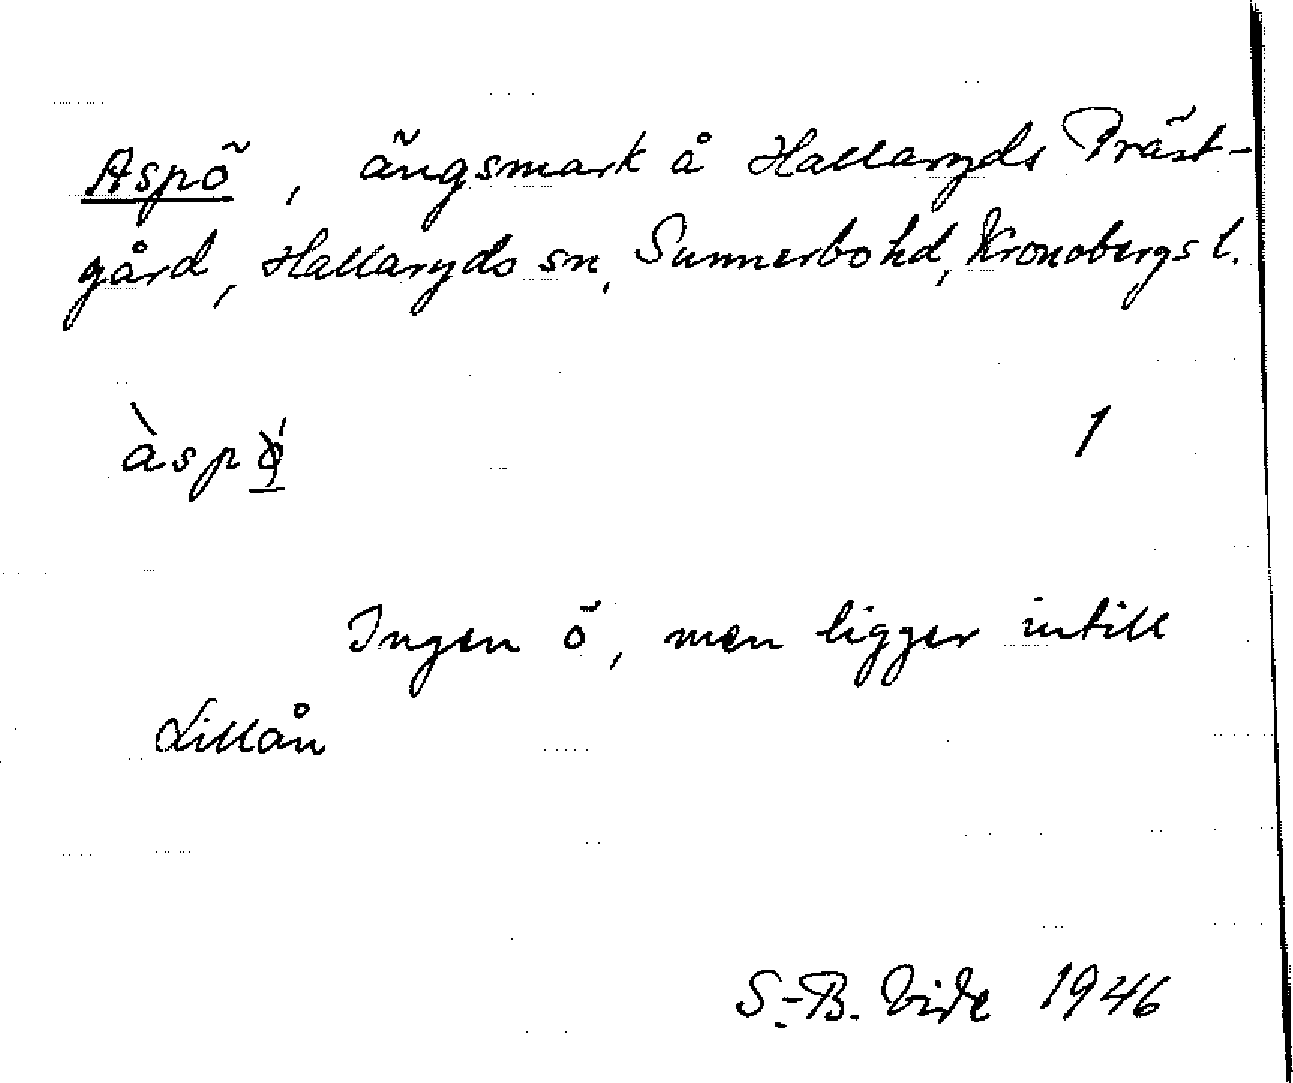 Aspö, ängsmark å Hallaryds Präst-
gård, Hallaryds sn, Sunnerbo hd, Kronobergs l.
àspǿ 1
Ingen ö, men ligger intill
Lillån
S.-B. Vide 1946